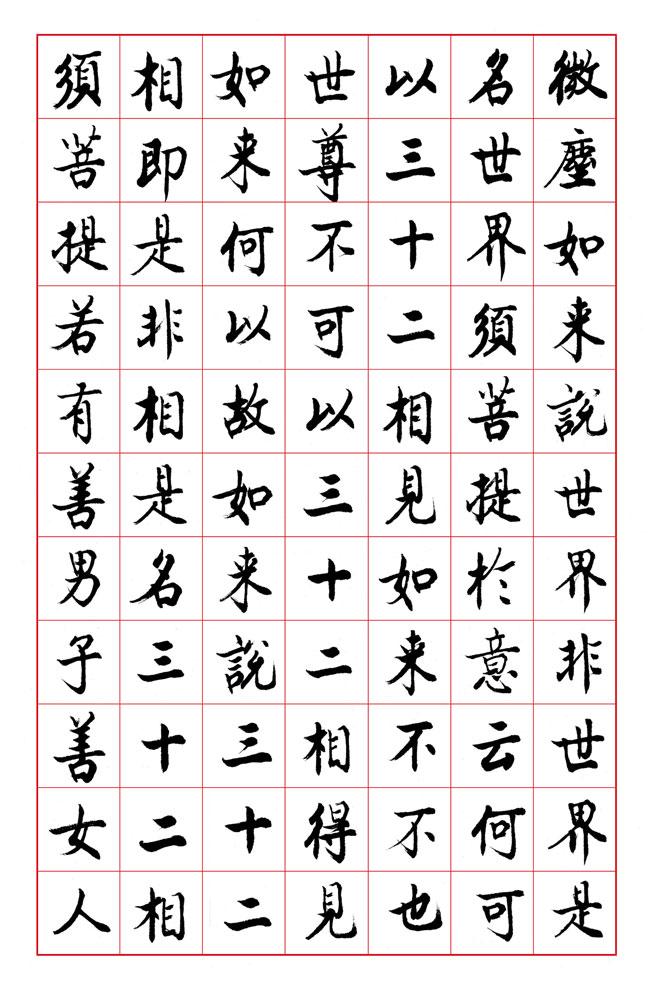 微塵如来説世界非世界是
名世界須菩提於意云何可
以三十二相見如来不不也
世尊不可以三十二相得見
如来何以故如来説三十二
相即是非相是名三十二相
須菩提若有善男子善女人